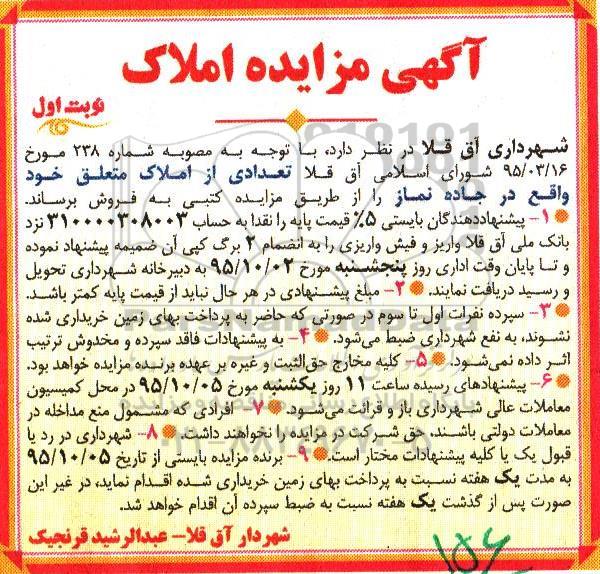 آگهی مزایده املاک
نوبت اول
شهرداری آق قلا در نظر دارد، با توجه به مصوبه شماره ۲۳۸ مورخ
۹۵/۰۳/۱۶ شورای اسلامی آق قلا تعدادی از املاک متعلق خود
واقع در جاده نماز را از طریق مزایده کتبی به فروش برساند.
۱- پیشنهاددهندگان بایستی ۵٪ قیمت پایه را نقدا به حساب ۳۱۰۰۰۰۰۳۰۸۰۰۳ نزد
بانک ملی آق قلا واریز و فیش واریزی را به انضمام ۲ برگ کپی آن ضمیمه پیشنهاد نموده
و تا پایان وقت اداری روز پنجشنبه مورخ ۹۵/۱۰/۰۲ به دبیرخانه شهرداری تحویل
و رسید دریافت نمایند. ۲- مبلغ پیشنهادی در هر حال نباید از قیمت پایه کمتر باشد.
۳- سپرده نفرات اول تا سوم در صورتی که حاضر به پرداخت بهای زمین خریداری شده
نشوند، به نفع شهرداری ضبط می‌شود. ۴- به پیشنهادات فاقد سپرده و مخدوش ترتیب
اثر داده نمی‌شود. ۵- کلیه مخارج حق‌الثبت و غیره بر عهده برنده مزایده خواهد بود.
۶- پیشنهادهای رسیده ساعت ۱۱ روز یکشنبه مورخ ۹۵/۱۰/۰۵ در محل کمیسیون
معاملات عالی شهرداری باز و قرائت می‌شود. ۷- افرادی که مشمول منع مداخله در
معاملات دولتی باشند، حق شرکت در مزایده را نخواهند داشت. ۸- شهرداری در رد یا
قبول یک یا کلیه پیشنهادات مختار است. ۹- برنده مزایده بایستی از تاریخ ۹۵/۱۰/۰۵
به مدت یک هفته نسبت به پرداخت بهای زمین خریداری شده اقدام نماید، در غیر این
صورت پس از گذشت یک هفته نسبت به ضبط سپرده آن اقدام خواهد شد.
شهردار آق قلا– عبدالرشید قرنجیک
۱۵۶